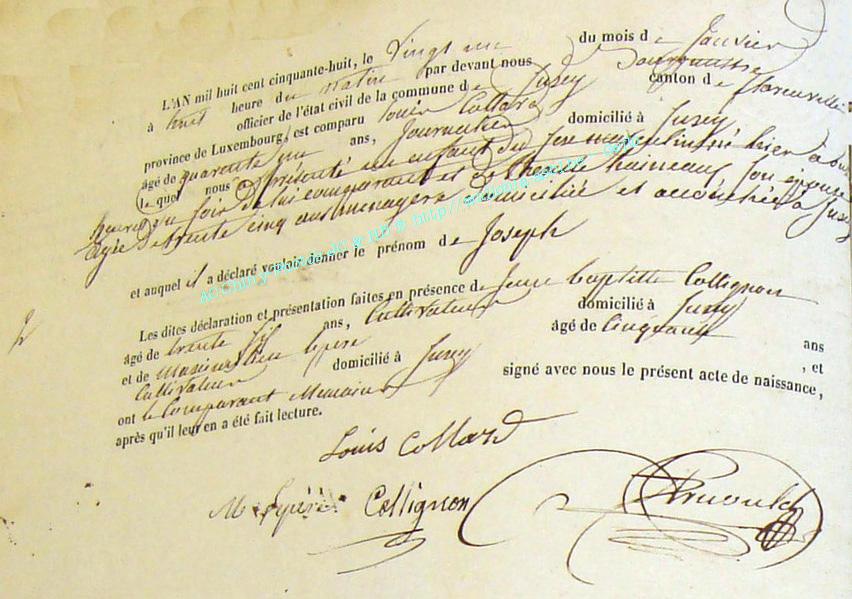 L'AN mil huit cent cinquante-huit, le Vingt un du mois de Janvier
à huit heure du Matin par devant nous
officier de l'état civil de la commune de Jusey canton de florenville
province de Luxembourg, est comparu louis Collard
âgé de quarente un ans, Journalier domicilié à Jusey
le quel nous a présenté un enfant du Sexe né hier à
heures du soir de lui comparant et de Therese son épouse
agée de trente cinq ans menagere domiciliée et accouchée à Jusey
et auquel il a déclaré vouloir donner le prénom de Joseph
Les dites déclaration et présentation faites en présence de Jean baptiste Collignon
âgé de trente ans, Cultivateur domicilié à Jusey
et de âgé de Cinquante ans
Cultivateur domicilié à Jusey , et
ont le Comparant signé avec nous le présent acte de naissance,
après qu'il leur en a été fait lecture.
Louis Collard
Collignon